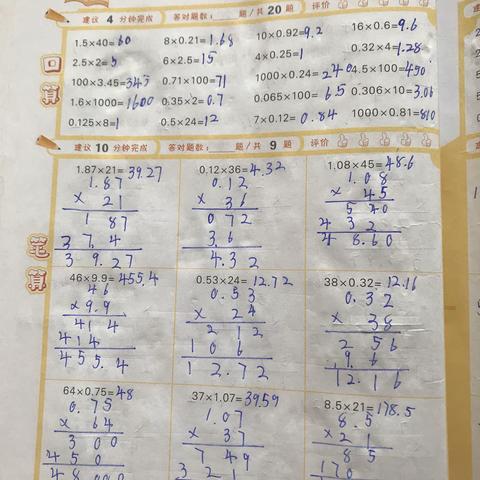 建议 4 分钟完成 答对题数: 题/共 20 题 评价
口算
1.5×40=60 8×0.21=1.68 10×0.92=9.2 16×0.6=9.6
2.5×2=5 6×2.5=15 4×0.25=1 0.32×4=1.28
100×3.45=345 0.71×100=71 1000×0.24=240 4.5×100=450
1.6×1000=1600 0.35×2=0.7 0.065×100=6.5 0.306×10=3.06
0.125×8=1 0.5×24=12 7×0.12=0.84 1000×0.81=810
建议 10 分钟完成 答对题数: 题/共 9 题 评价
笔算
1.87×21=39.27 0.12×36=4.32 1.08×45=48.6
1.87 0.12 1.08
×21 ×36 ×45
187 072 540
37.4 3.6 432
39.27 4.32 48.60
46×9.9=455.4 0.53×24=12.72 38×0.32=12.16
46 0.53 0.32
×9.9 ×24 ×38
414 212 256
414 106 9.6
455.4 12.72 12.16
64×0.75=48 37×1.07=39.59 8.5×21=178.5
0.75 1.07 8.5
×64 ×37 ×21
300 749 85
450 321 170